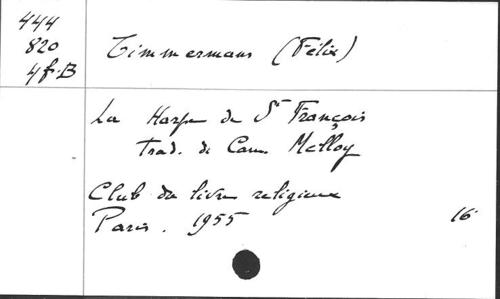 444
820
4f.B
Timmermans (Félix)
La Harpe de St François
trad. de Cam. Melloy
Club du livre religieux
Paris. 1955 16°